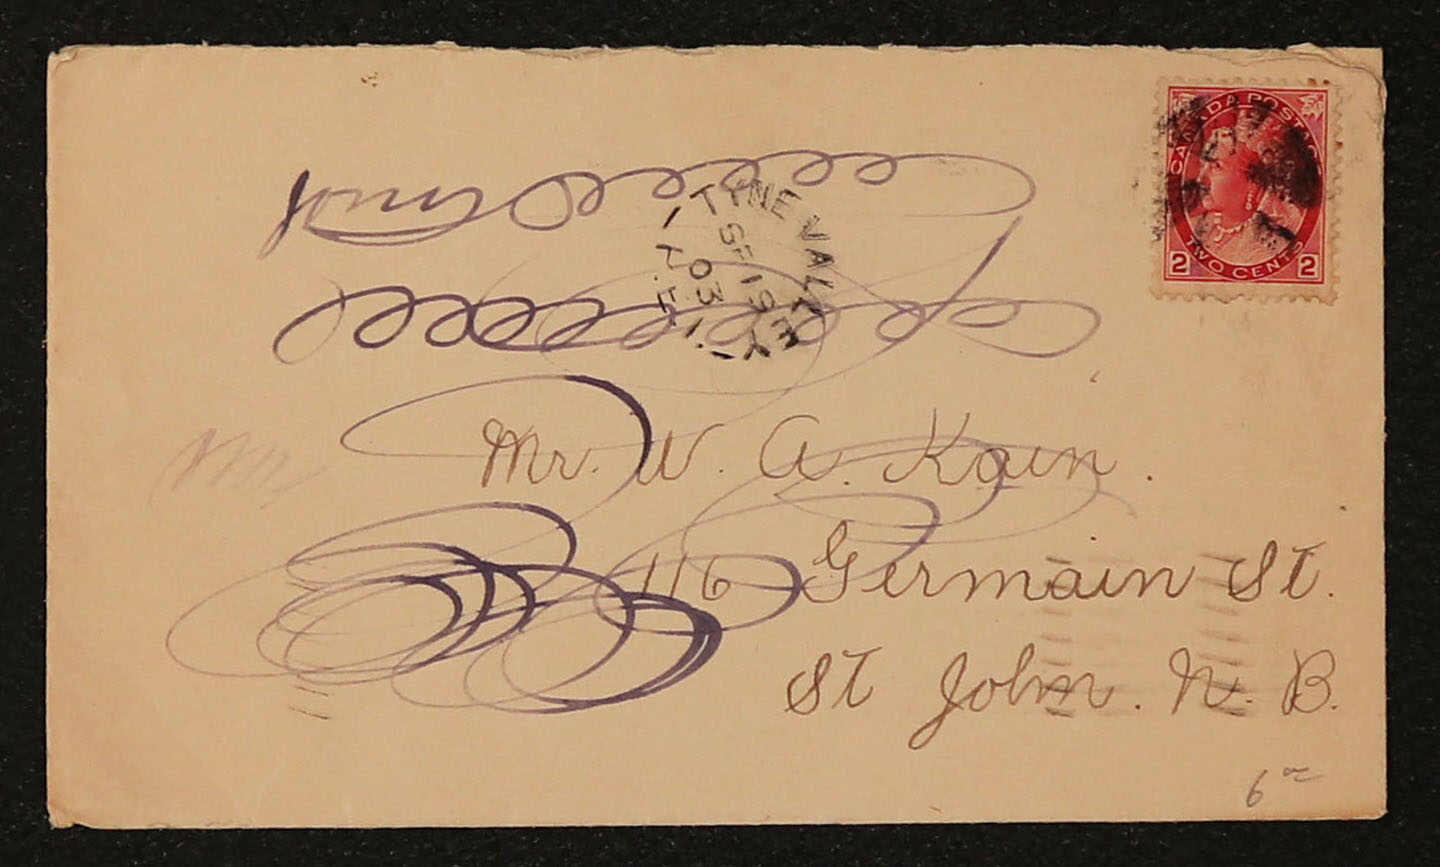 CANADA POSTAGE
2 TWO CENTS 2
TYNE VALLEY
SP 19
03
P.E.I.
Mr. W. A. Kain.
116 Germain St.
St John. N. B.
6